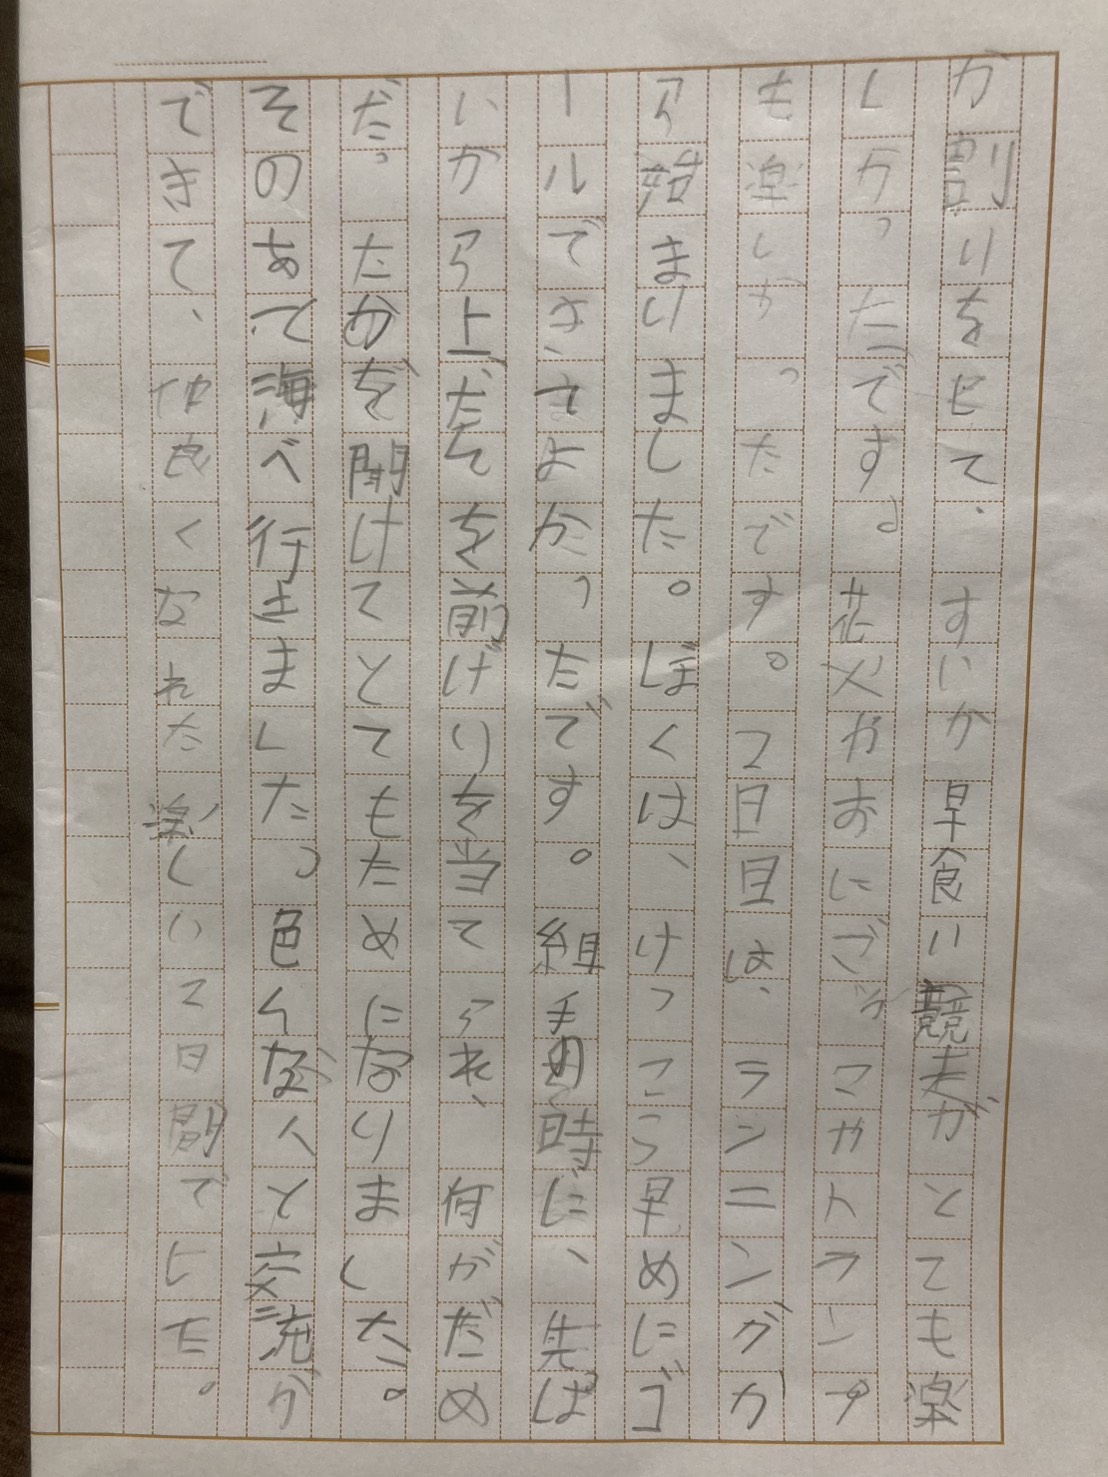 が割りをせて、すいか早食い競走がとても楽
しかったです。花火やおにごっこやトランプ
も楽しかったです。2日目は、ランニングか
ら始まりました。ぼくは、けっこう早めにゴ
ールできてよかったです。組手の時に、先ぱ
いから上だんを前げりを当てられ、何がだめ
だったかを聞けてとてもためになりました。
そのあと海べ行きました。色んな人と交流が
できて、仲良くなれた楽しい2日間でした。